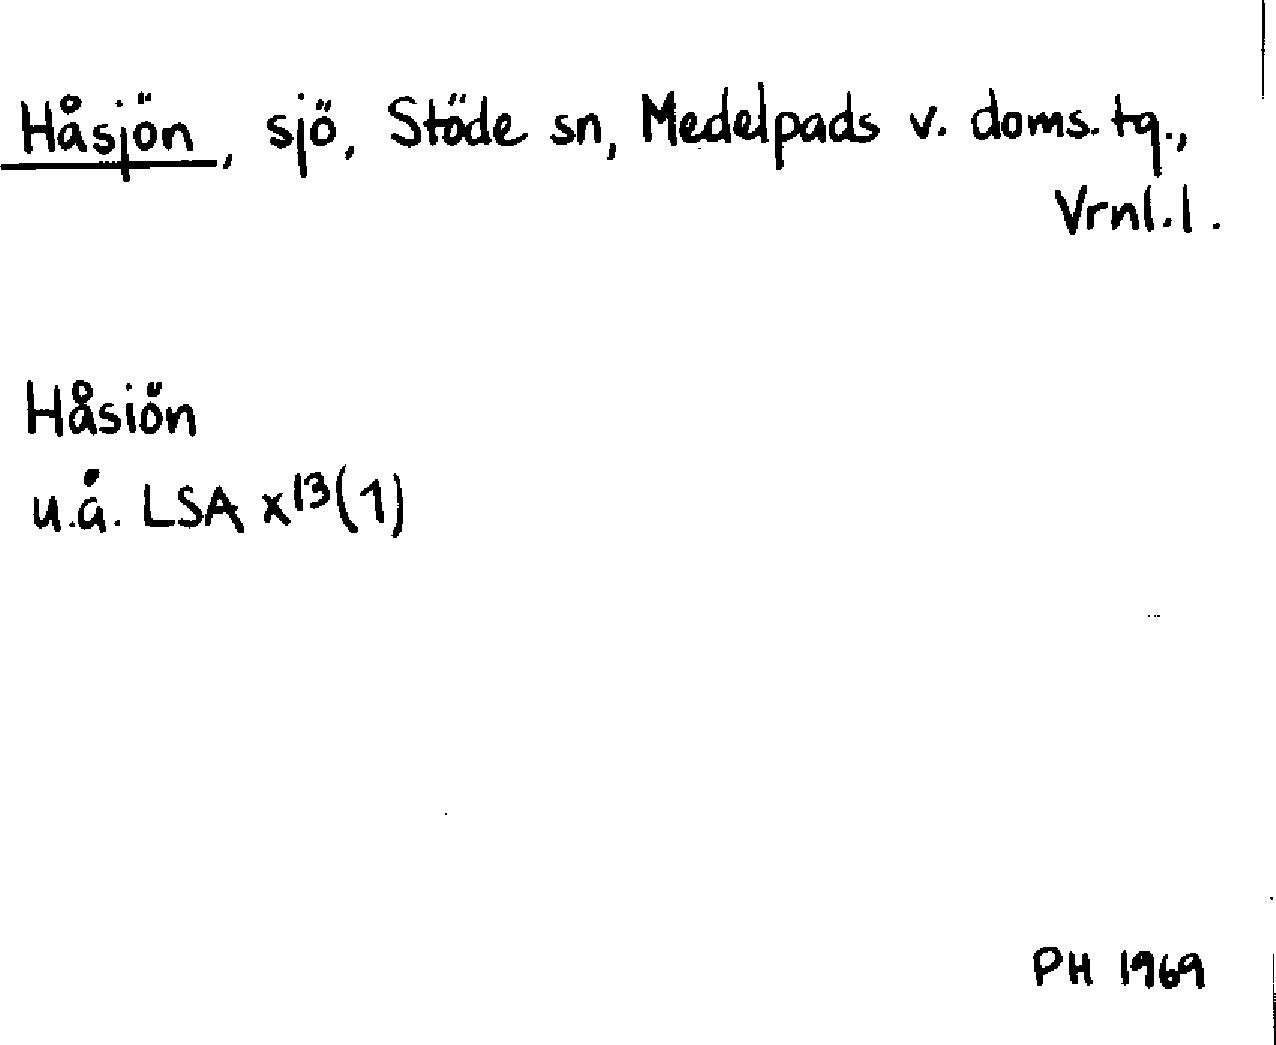 Håsjön, sjö, Stöde sn, Medelpads v. doms. tg.,
Vrnl.l.
Håsiön
u.å. LSA x13(1)
PH 1969